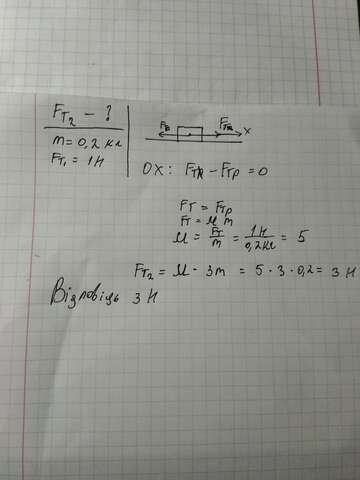 F_T₂ - ?
m = 0,2 кг
F_T₁ = 1 Н
X
OX: F_T - F_Tр = 0
F_T = F_Tр
F_T = μ m
μ = F_T/m = 1Н/0,2кг = 5
F_T₂ = μ · 3m = 5 · 3 · 0,2 = 3 Н
Відповідь 3 Н